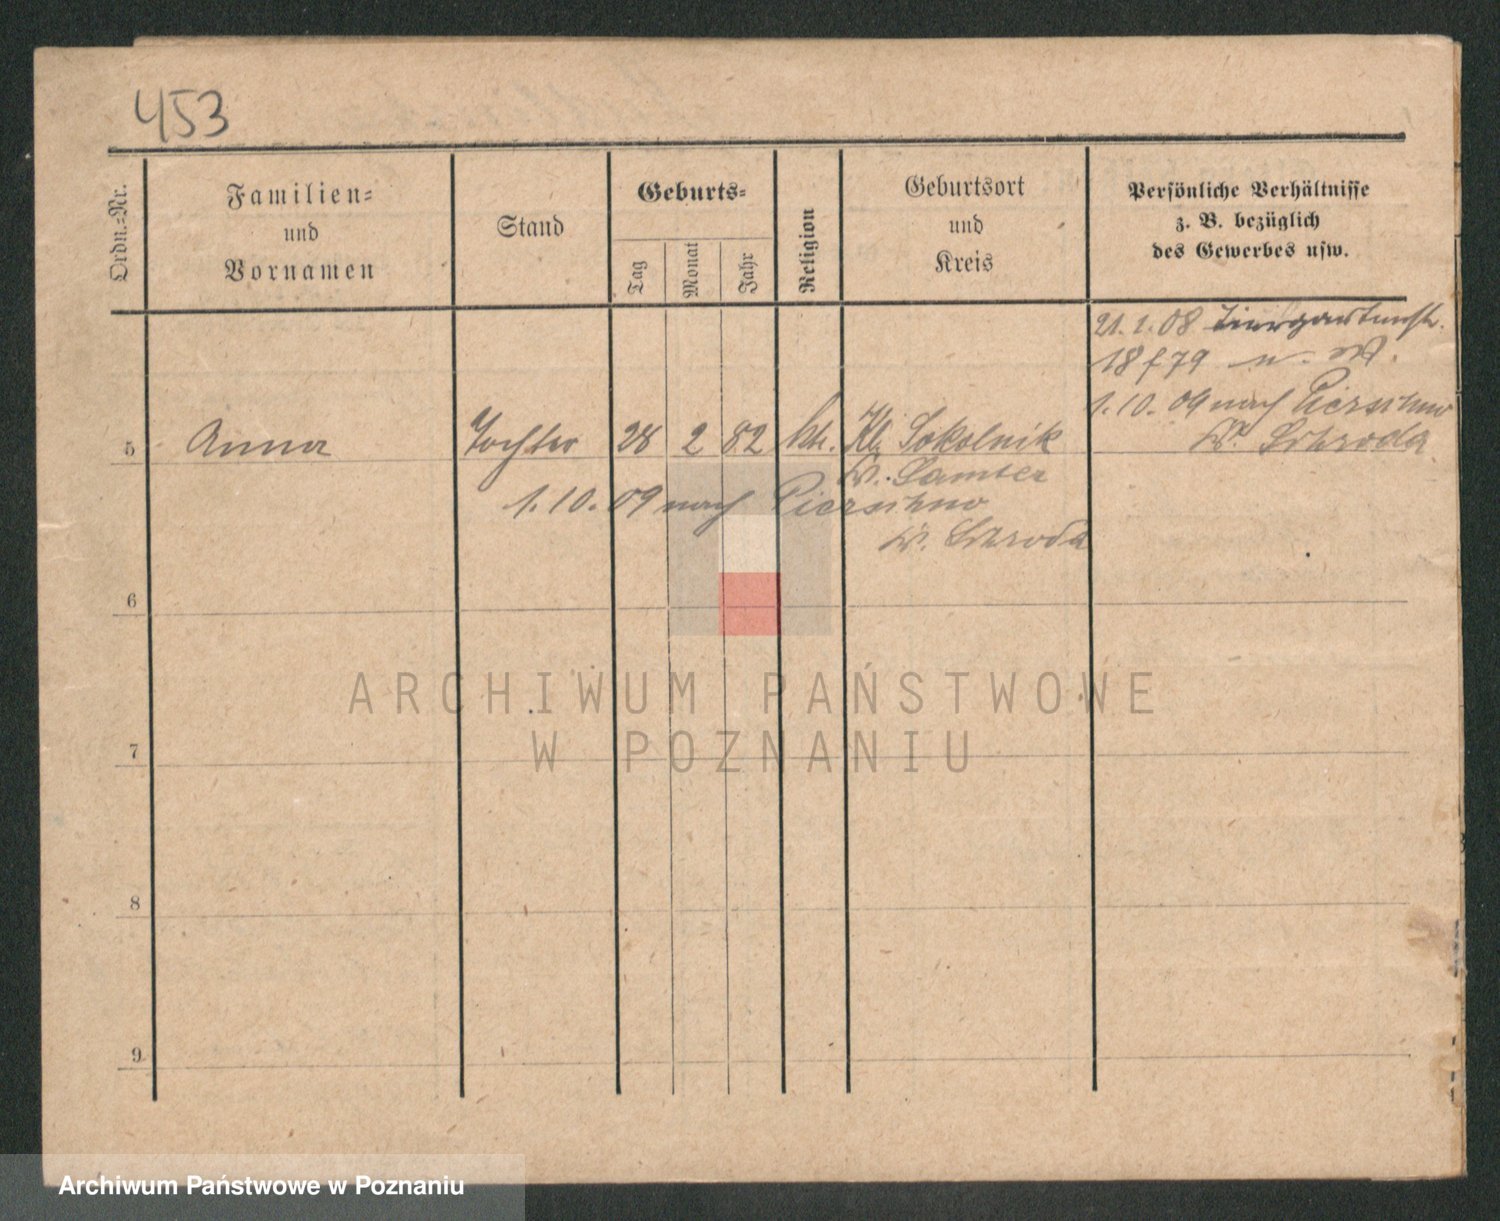 453
Ordn.-Nr.
Familien-
und
Vornamen
Stand
Geburts-
Tag
Monat
Jahr
Religion
Geburtsort
und
Kreis
Persönliche Verhältnisse
z. B. bezüglich
des Gewerbes usw.
21.1.08 Tiergartenstr.
18 f 79
1.10.09 nach Pierschno
Kr. Schroda
5 Anna Tochter 28 2 82 kth. Kl. Sokolnik
Kr. Samter
1.10.09 nach Pierschno
Kr. Schroda
6
7
8
9
ARCHIWUM PAŃSTWOWE
W POZNANIU
Archiwum Państwowe w Poznaniu